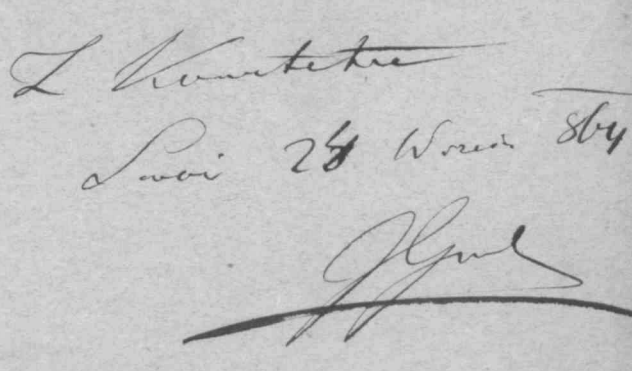 Z Komitetu
Lwów 28 Wrześ 864